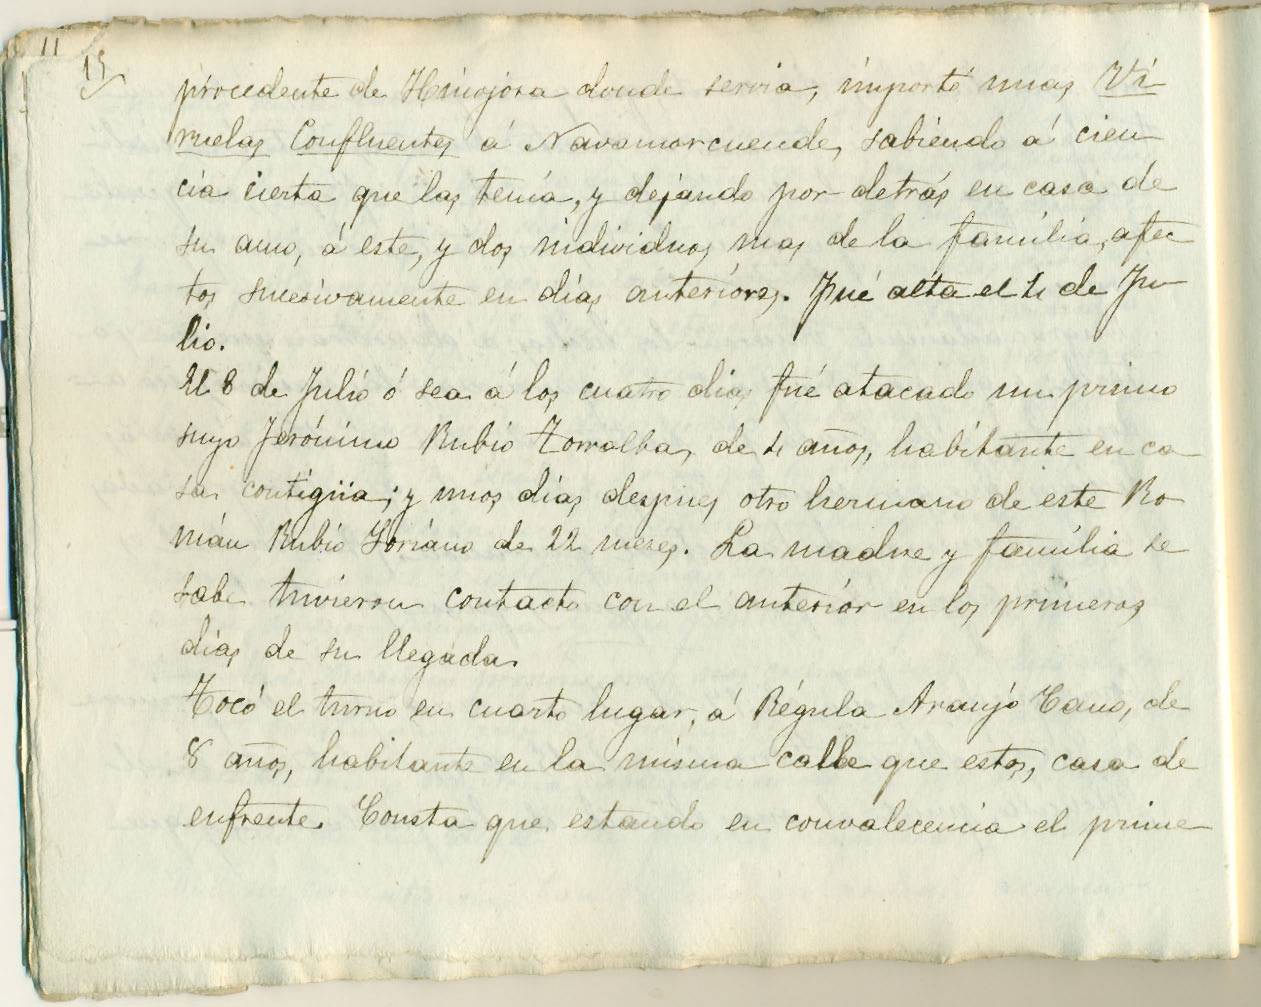 11
15
procedente de Hinojosa donde servia, importó unas Vi
ruelas Confluentes á Navamorcuende, sabiendo á cien
cia cierta que las tenía, y dejando por detrás en casa de
su amo, á este, y dos individuos mas de la família, afec
tos sucesivamente en días anteriores. Fué alta el 4 de Ju
lio.
El 8 de Julio ó sea á los cuatro días fué atacado un primo
suyo Jerónimo Rubio Torralba, de 4 años, habitante en ca
sa contigüa; y unos días despues otro hermano de este Ro
mán Rubio Soriano de 22 meses. La madre y família se
sabe tuvieron contacto con el anterior en los primeros
días de su llegada.
Tocó el turno en cuarto lugar, á Régula Araujo Cano, de
8 años, habitante en la misma calle que estos, casa de
enfrente. Consta que estando en convalecencia el prime